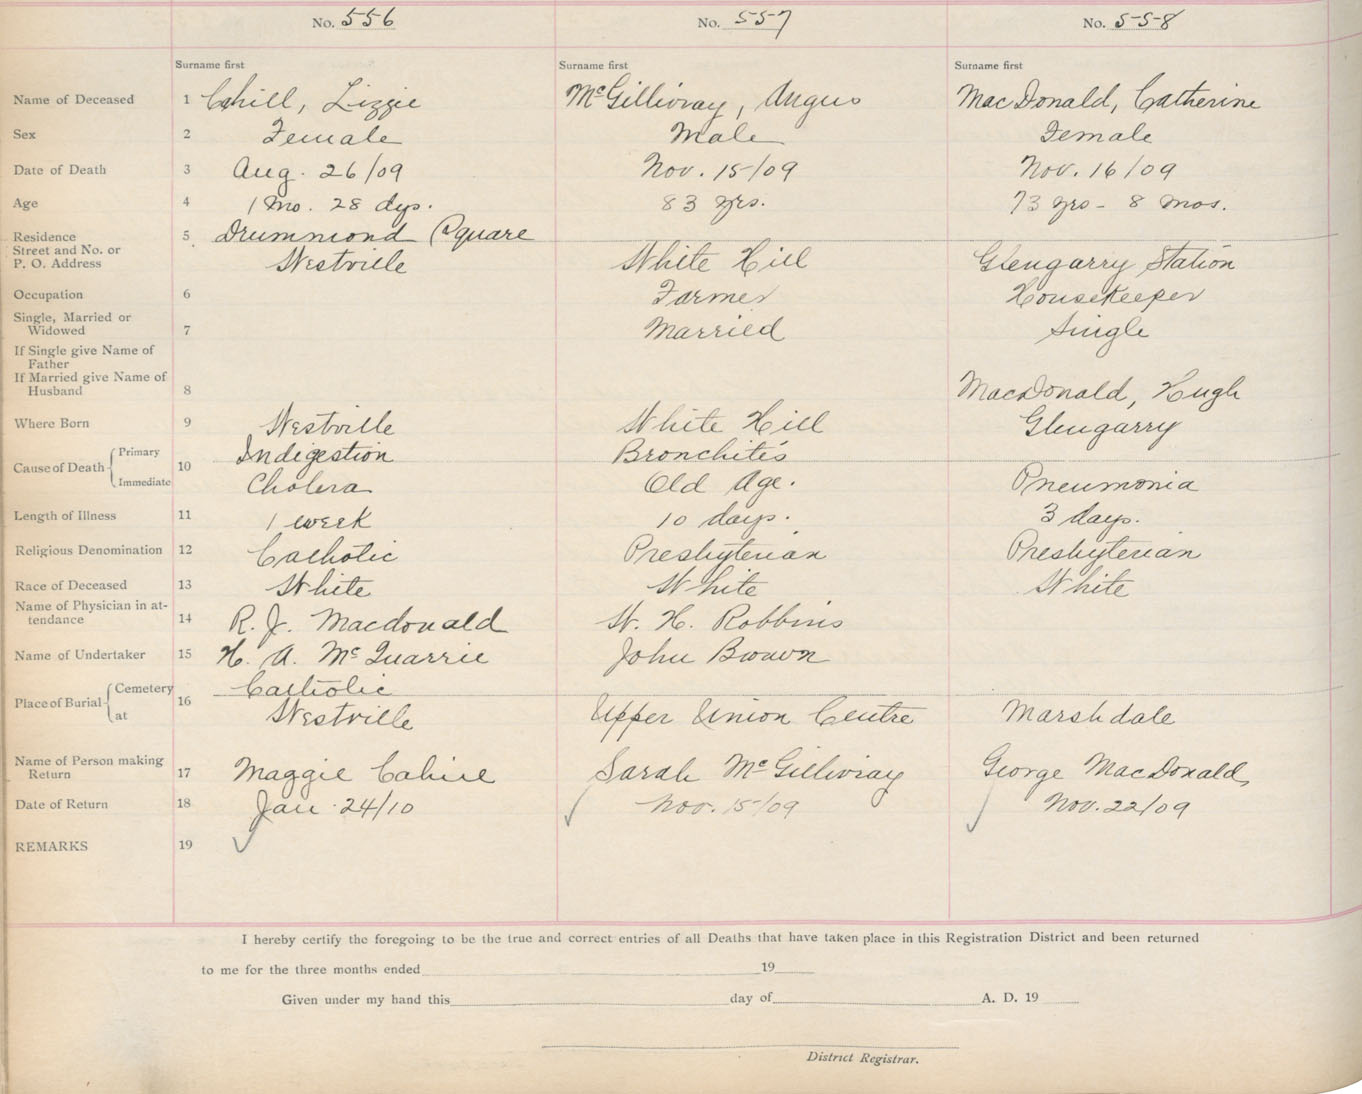 No. 556 No. 557 No. 558
Surname first Surname first Surname first
Name of Deceased 1 Cahill, Lizzie McGillivray, Angus MacDonald, Catherine
Sex 2 Female Male Female
Date of Death 3 Aug. 26/09 Nov. 15/09 Nov. 16/09
Age 4 1 Mo. 28 dys. 83 yrs. 73 yrs - 8 mos.
Residence 5 Drummond Square
Street and No. or
P. O. Address Westville White Hill Glengarry Station
Occupation 6 Farmer Housekeeper
Single, Married or
Widowed 7 Married Single
If Single give Name of
Father
If Married give Name of
Husband 8 MacDonald, Hugh
Where Born 9 Westville White Hill Glengarry
Cause of Death 10 Primary Indigestion Bronchitis
Immediate Cholera Old Age. Pneumonia
Length of Illness 11 1 week 10 days. 3 days.
Religious Denomination 12 Catholic Presbyterian Presbyterian
Race of Deceased 13 White White White
Name of Physician in at-
tendance 14 R. J. Macdonald W. H. Robbins
Name of Undertaker 15 H. A. McQuarrie John Brown
Place of Burial 16 Cemetery Catholic
at Westville Upper Union Centre Marshdale
Name of Person making
Return 17 Maggie Cahill Sarah McGillivray George MacDonald
Date of Return 18 Jan 24/10 Nov. 15/09 Nov. 22/09
REMARKS 19
I hereby certify the foregoing to be the true and correct entries of all Deaths that have taken place in this Registration District and been returned
to me for the three months ended 19
Given under my hand this day of A. D. 19
District Registrar.